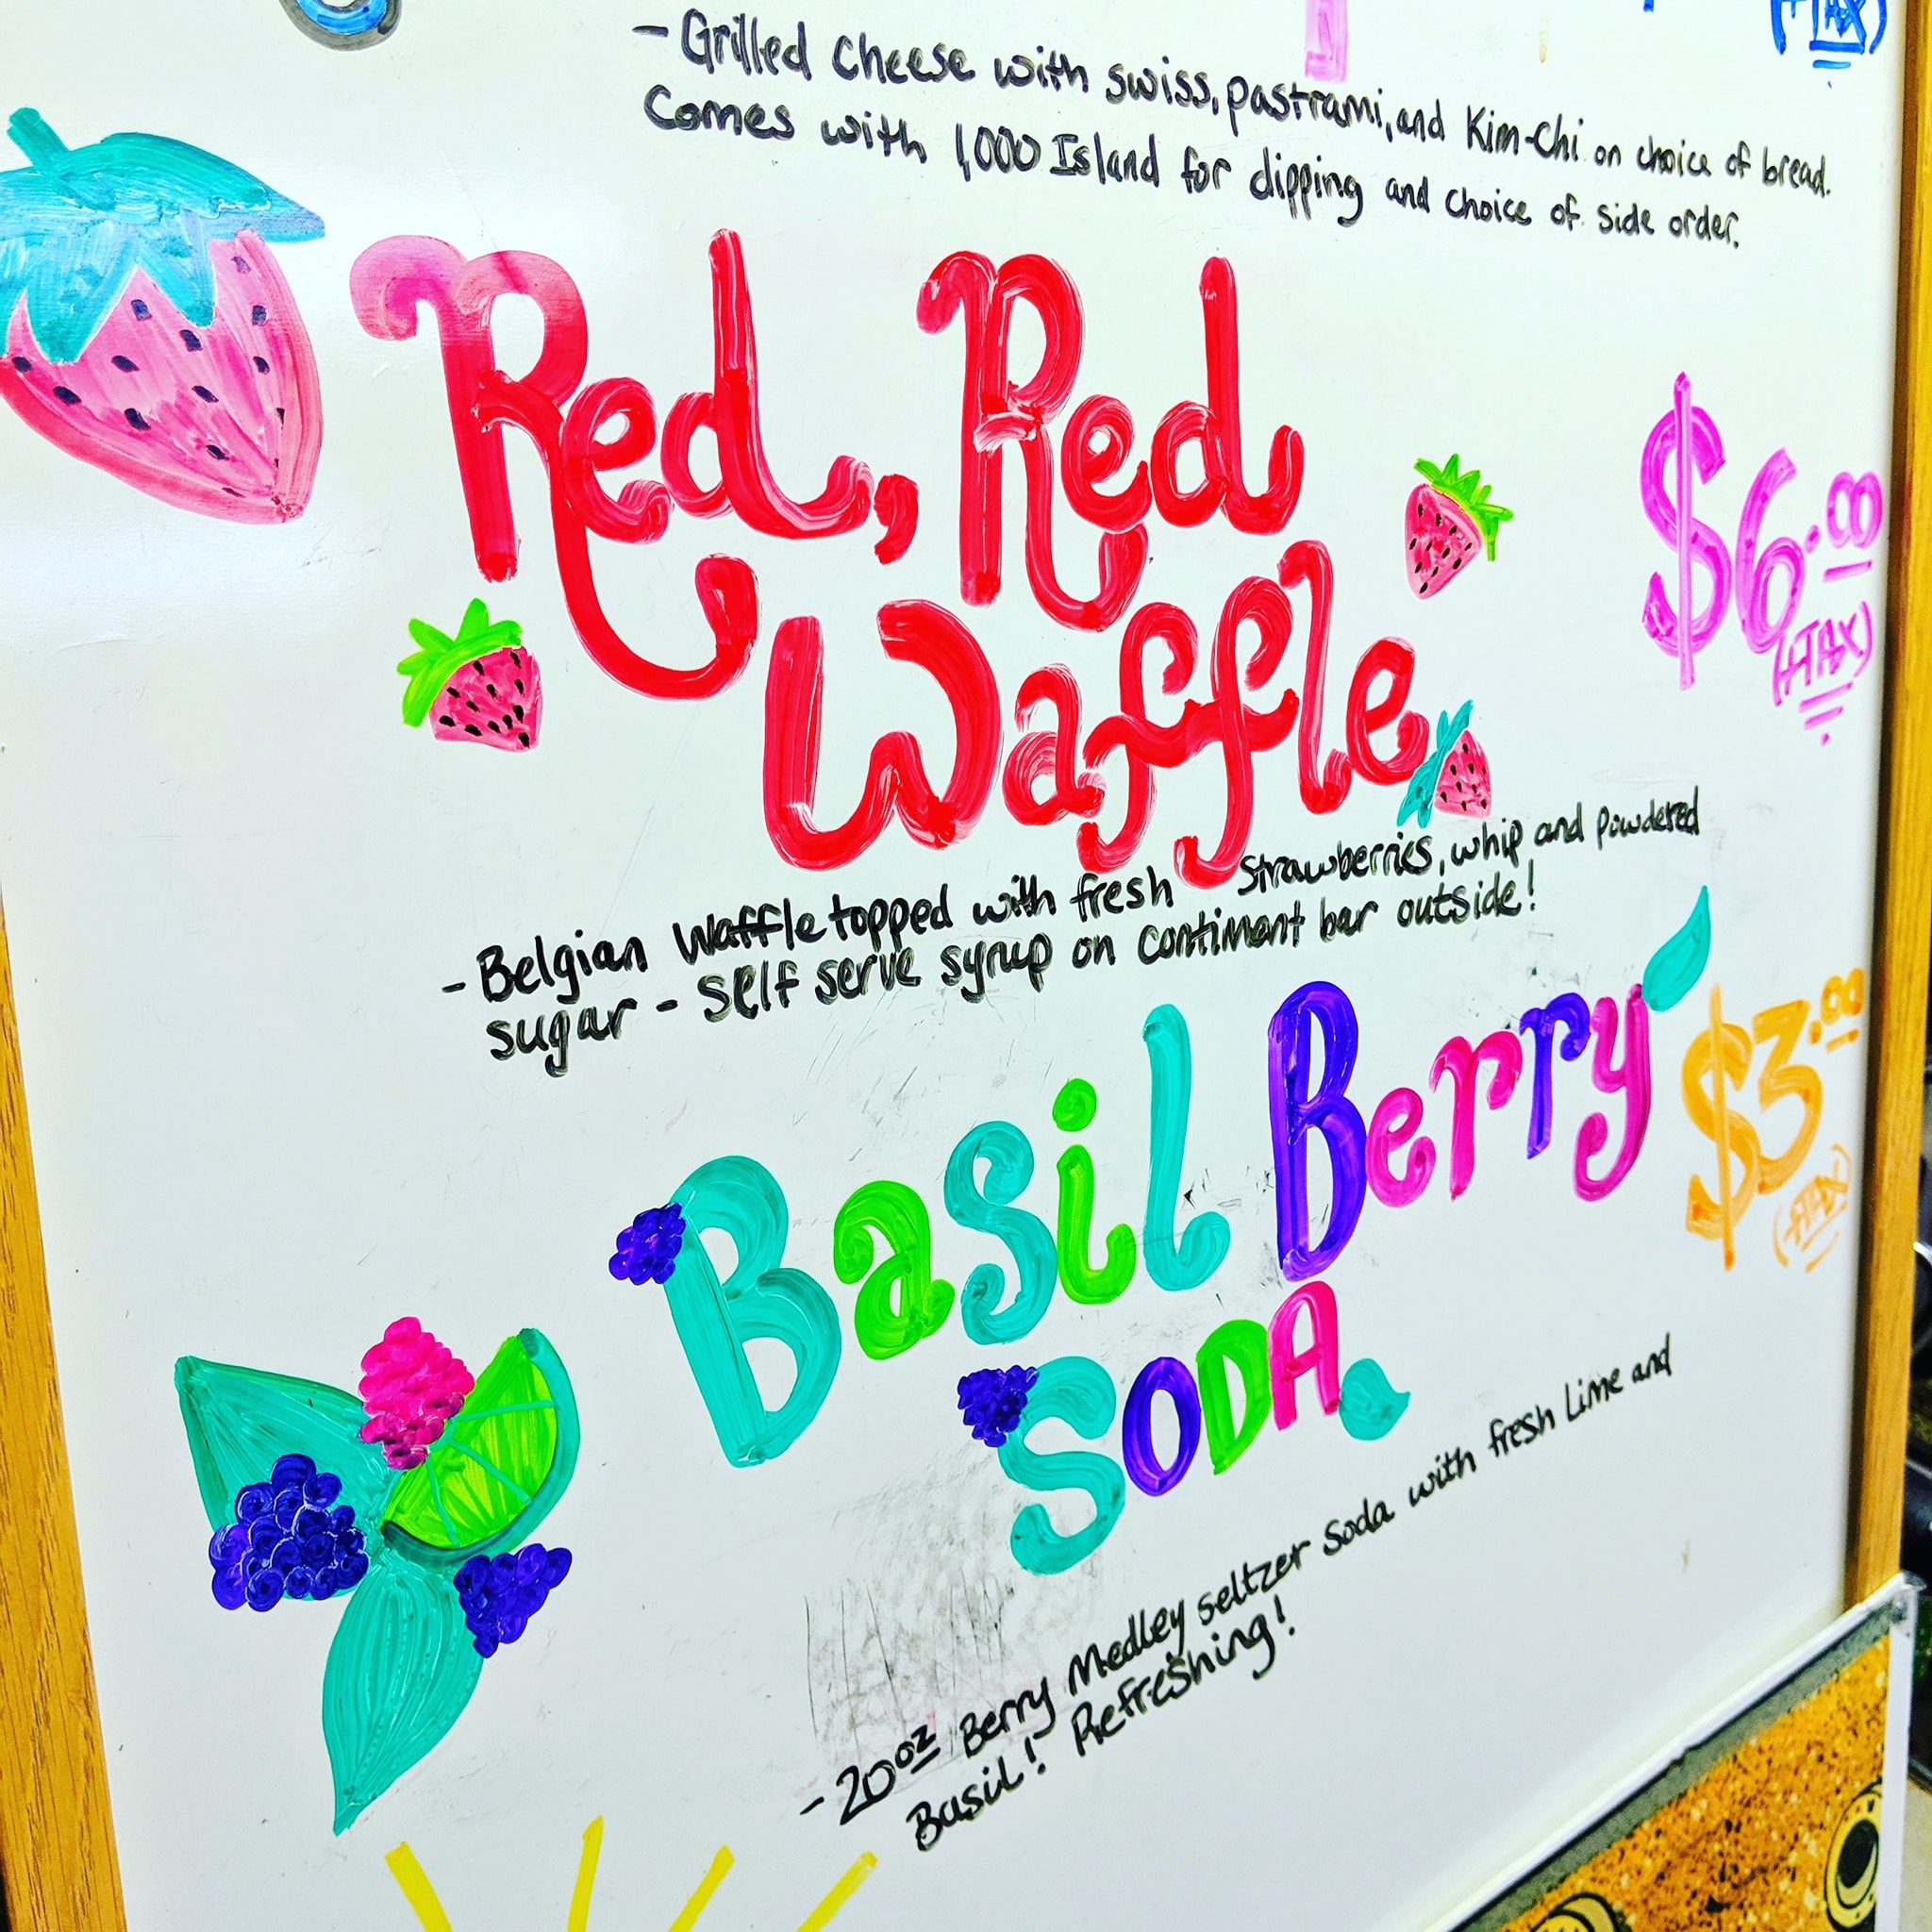 (+TAX)
- Grilled Cheese with swiss, pastrami, and Kim-Chi on choice of bread.
Comes with 1,000 Island for dipping and choice of side order.
Red, Red
Waffle
$6.00
(+TAX)
- Belgian Waffle topped with fresh Strawberries, whip and powdered
sugar - self serve syrup on contiment bar outside!
Basil Berry
SODA
$3.00
(+TAX)
- 20oz Berry Medley seltzer Soda with fresh Lime and
Basil! Refreshing!